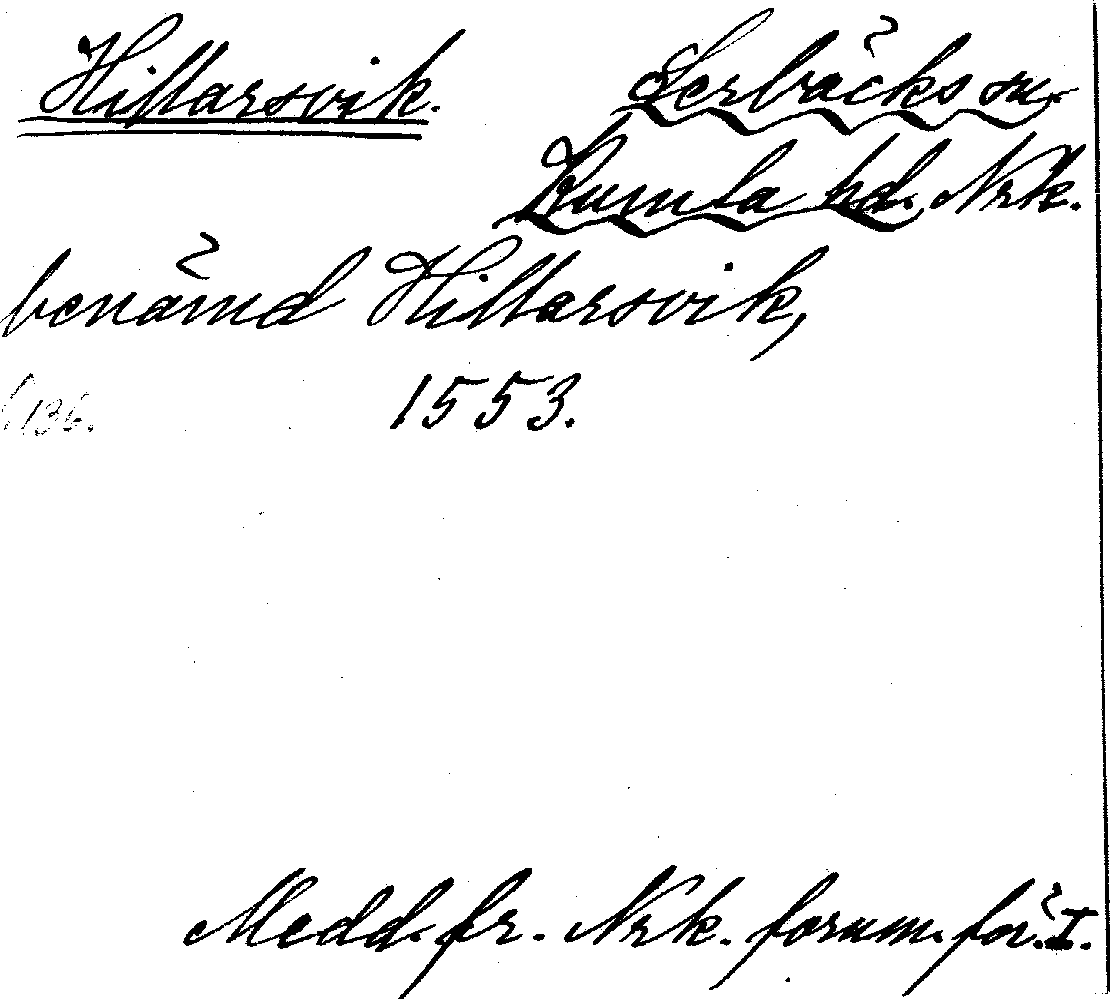 Hillarsvik.
Lerbäcks sn.
Kumla hd. Nrk.
benämd Hillarsvik,
136. 1553.
Medd. fr. Nrk. fornm. för. I.